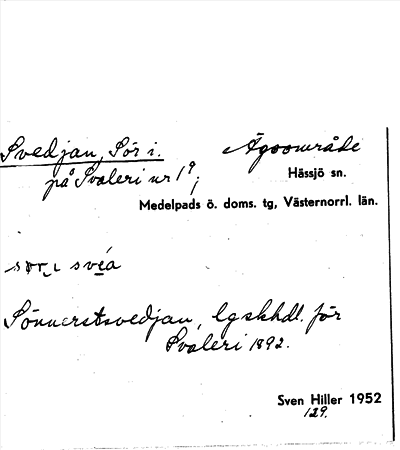 Svedjan, Sör i.
Ägoområde
på Svaleri nr 1 9;
Hässjö sn.
Medelpads ö. doms. tg, Västernorrl. län.
sör i svéa
Sönnerstsvedjan, lgskhdl. för
Svaleri 1892.
Sven Hiller 1952
129.